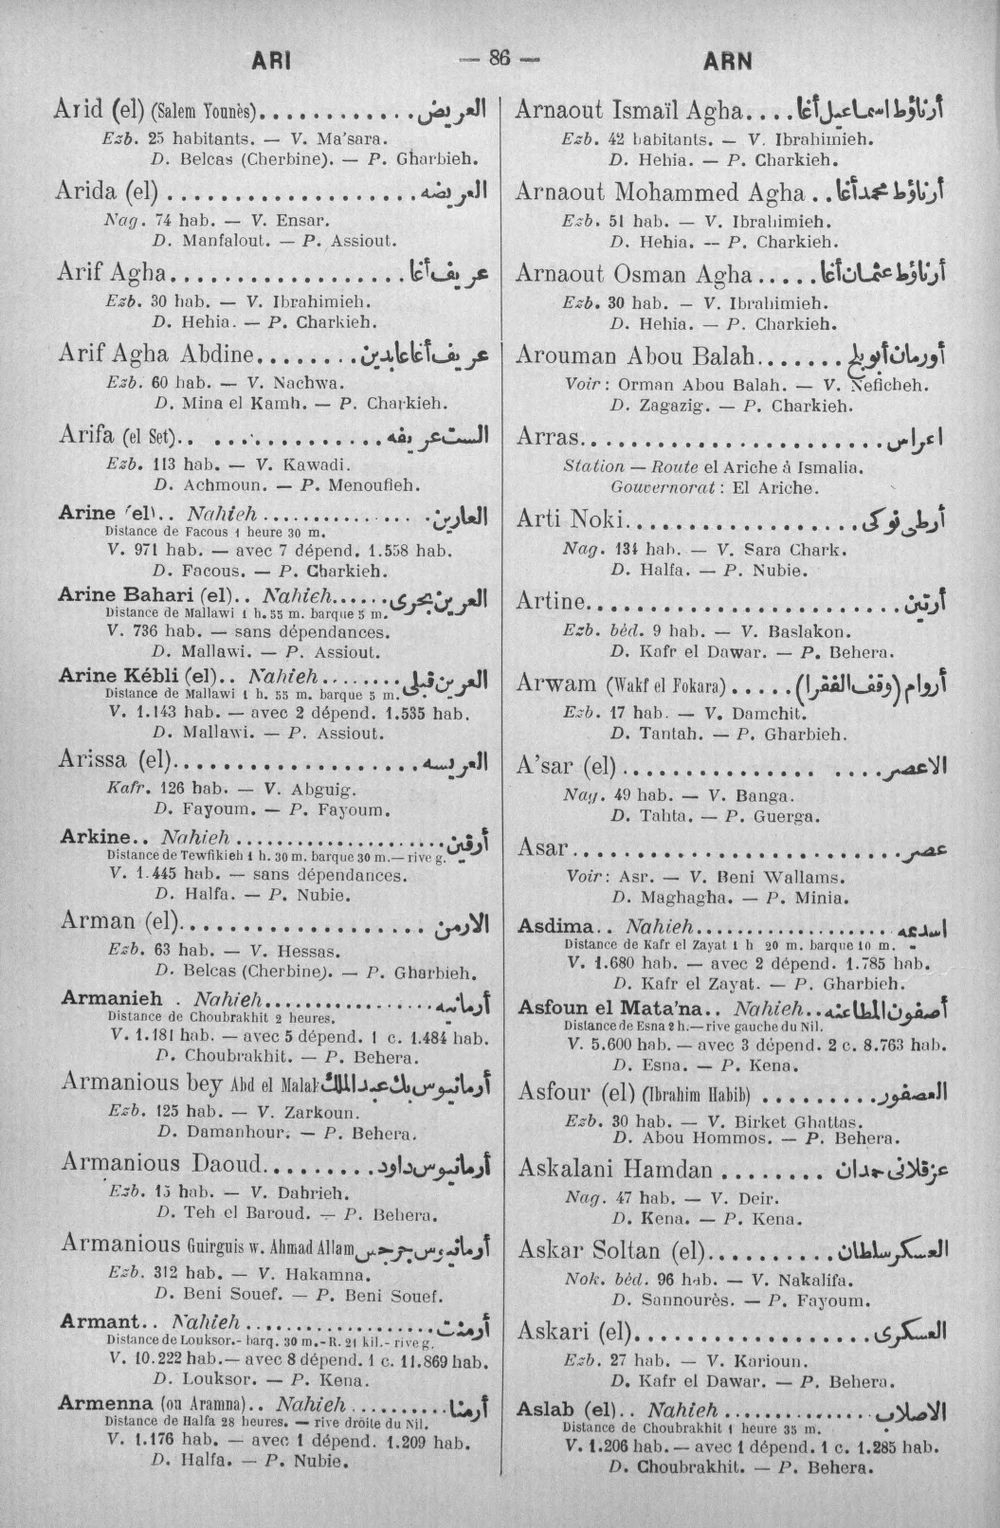 ARI — 86 — ARN
Arid (el) (Salem Younès). . . . . . . . . . . . العريض
Ezb. 25 habitants. — V. Ma'sara.
D. Belcas (Cherbine). — P. Gharbieh.
Arida (el) . . . . . . . . . . . . . . . . . . العريضه
Nag. 74 hab. — V. Ensar.
D. Manfalout. — P. Assiout.
Arif Agha. . . . . . . . . . . . . . . . . عريف أغا
Ezb. 30 hab. — V. Ibrahimieh.
D. Hehia. — P. Charkieh.
Arif Agha Abdine. . . . . . . . عريف أغا عابدين
Ezb. 60 hab. — V. Nachwa.
D. Mina el Kamh. — P. Charkieh.
Arifa (el Set). . . . . . . . . . . . . . . الست عريفه
Ezb. 113 hab. — V. Kawadi.
D. Achmoun. — P. Menoufieh.
Arine (el).. Nahieh . . . . . . . . . . . . . . العارين
Distance de Facous 1 heure 30 m.
V. 971 hab. — avec 7 dépend. 1.558 hab.
D. Facous. — P. Charkieh.
Arine Bahari (el).. Nahieh. . . . . . العرين بحرى
Distance de Mallawi 1 h. 55 m. barque 5 m.
V. 736 hab. — sans dépendances.
D. Mallawi. — P. Assiout.
Arine Kébli (el).. Nahieh . . . . . . . . العرين قبلى
Distance de Mallawi 1 h. 55 m. barque 5 m.
V. 1.143 hab. — avec 2 dépend. 1.535 hab.
D. Mallawi. — P. Assiout.
Arissa (el). . . . . . . . . . . . . . . . . . العريسه
Kafr. 126 hab. — V. Abguig.
D. Fayoum. — P. Fayoum.
Arkine.. Nahieh . . . . . . . . . . . . . . . . أرقين
Distance de Tewfikieh 1 h. 30 m. barque 30 m.— rive g.
V. 1.445 hab. — sans dépendances.
D. Halfa. — P. Nubie.
Arman (el). . . . . . . . . . . . . . . . . . الارمن
Ezb. 63 hab. — V. Hessas.
D. Belcas (Cherbine). — P. Gharbieh.
Armanieh . Nahieh. . . . . . . . . . . . . . أرمانيه
Distance de Choubrakhit 2 heures.
V. 1.181 hab. — avec 5 dépend. 1 c. 1.484 hab.
D. Choubrakhit. — P. Behera.
Armanious bey Abd el Malak أرمانيوس بك عبد الملك
Ezb. 125 hab. — V. Zarkoun.
D. Damanhour. — P. Behera.
Armanious Daoud. . . . . . . . . أرمانيوس داود
Ezb. 15 hab. — V. Dahrieh.
D. Teh el Baroud. — P. Behera.
Armanious Guirguis w. Ahmad Allam أرمانيوس جرجس
Ezb. 312 hab. — V. Hakamna.
D. Beni Souef. — P. Beni Souef.
Armant.. Nahieh . . . . . . . . . . . . . . . أرمنت
Distance de Louksor.- barq. 30 m.- R. 21 kil.- rive g.
V. 10.222 hab.— avec 8 dépend. 1 c. 11.869 hab.
D. Louksor. — P. Kena.
Armenna (ou Aramna).. Nahieh . . . . . . . . . . أرمنا
Distance de Halfa 28 heures. — rive droite du Nil.
V. 1.176 hab. — avec 1 dépend. 1.209 hab.
D. Halfa. — P. Nubie.
Arnaout Ismaïl Agha. . . . أرناؤط اسماعيل أغا
Ezb. 42 habitants. — V. Ibrahimieh.
D. Hehia. — P. Charkieh.
Arnaout Mohammed Agha . . أرناؤط محمد أغا
Ezb. 51 hab. — V. Ibrahimieh.
D. Hehia. — P. Charkieh.
Arnaout Osman Agha . . . . . أرناؤط عثمان أغا
Ezb. 30 hab. — V. Ibrahimieh.
D. Hehia. — P. Charkieh.
Arouman Abou Balah. . . . . . . أورمان أبو بلح
Voir : Orman Abou Balah. — V. Neficheh.
D. Zagazig. — P. Charkieh.
Arras. . . . . . . . . . . . . . . . . . . . . . . اعراس
Station — Route el Ariche à Ismalia.
Gouvernorat : El Ariche.
Arti Noki. . . . . . . . . . . . . . . . . أرطى نوكى
Nag. 134 hab. — V. Sara Chark.
D. Halfa. — P. Nubie.
Artine. . . . . . . . . . . . . . . . . . . . . . . أرتين
Ezb. béd. 9 hab. — V. Baslakon.
D. Kafr el Dawar. — P. Behera.
Arwam (Wakf el Fokara) . . . . . أروام (وقف الفقرا)
Ezb. 17 hab. — V. Damchit.
D. Tantah. — P. Gharbieh.
A'sar (el) . . . . . . . . . . . . . . . . . . الاعصر
Nag. 49 hab. — V. Banga.
D. Tahta. — P. Guerga.
Asar . . . . . . . . . . . . . . . . . . . . . . . . عصر
Voir : Asr. — V. Beni Wallams.
D. Maghagha. — P. Minia.
Asdima.. Nahieh. . . . . . . . . . . . . . . . اسديمه
Distance de Kafr el Zayat 1 h 20 m. barque 10 m.
V. 1.680 hab. — avec 2 dépend. 1.785 hab.
D. Kafr el Zayat. — P. Gharbieh.
Asfoun el Mata'na.. Nahieh. . أصفون المطاعنه
Distance de Esna 2 h.— rive gauche du Nil.
V. 5.600 hab. — avec 3 dépend. 2 c. 8.763 hab.
D. Esna. — P. Kena.
Asfour (el) (Ibrahim Habib) . . . . . . . . . العصفور
Ezb. 30 hab. — V. Birket Ghattas.
D. Abou Hommos. — P. Behera.
Askalani Hamdan . . . . . . . . عزقلانى حمدان
Nag. 47 hab. — V. Deir.
D. Kena. — P. Kena.
Askar Soltan (el). . . . . . . . . . العسكر سلطان
Nok. béd. 96 hab. — V. Nakalifa.
D. Sannourès. — P. Fayoum.
Askari (el). . . . . . . . . . . . . . . . . . العسكرى
Ezb. 27 hab. — V. Karioun.
D. Kafr el Dawar. — P. Behera.
Aslab (el).. Nahieh . . . . . . . . . . . . . الاصلاب
Distance de Choubrakhit 1 heure 35 m.
V. 1.206 hab. — avec 1 dépend. 1 c. 1.285 hab.
D. Choubrakhit. — P. Behera.